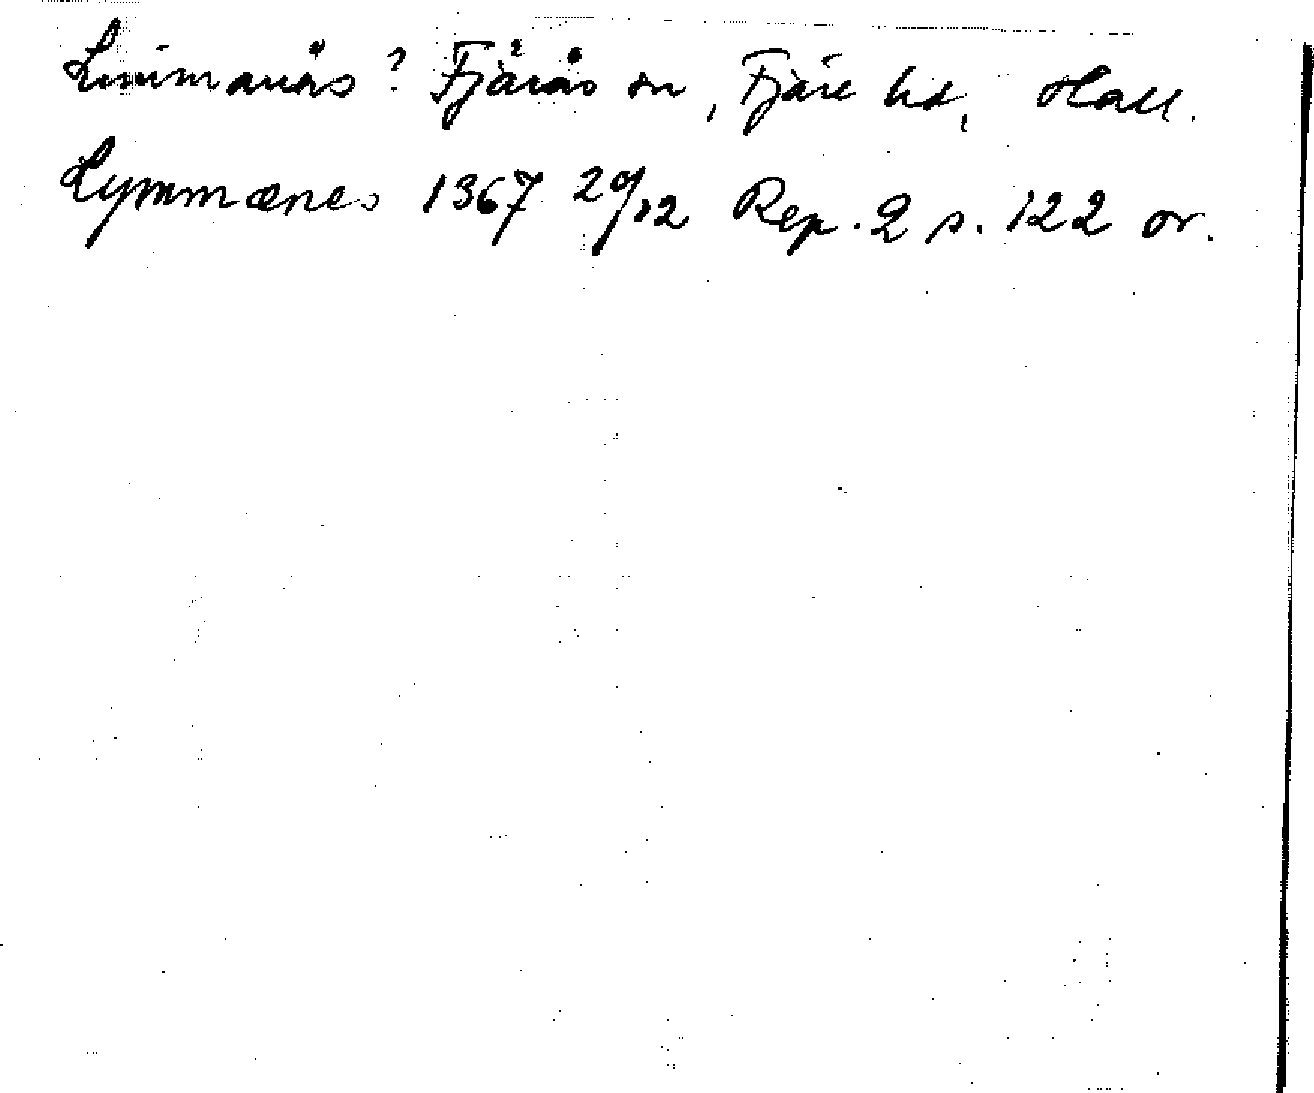 Limmanäs? Fjärås sn, Fjäre hd, Hall.
Lymmænes 1367 29/12 Rep. 2 s. 122 or.